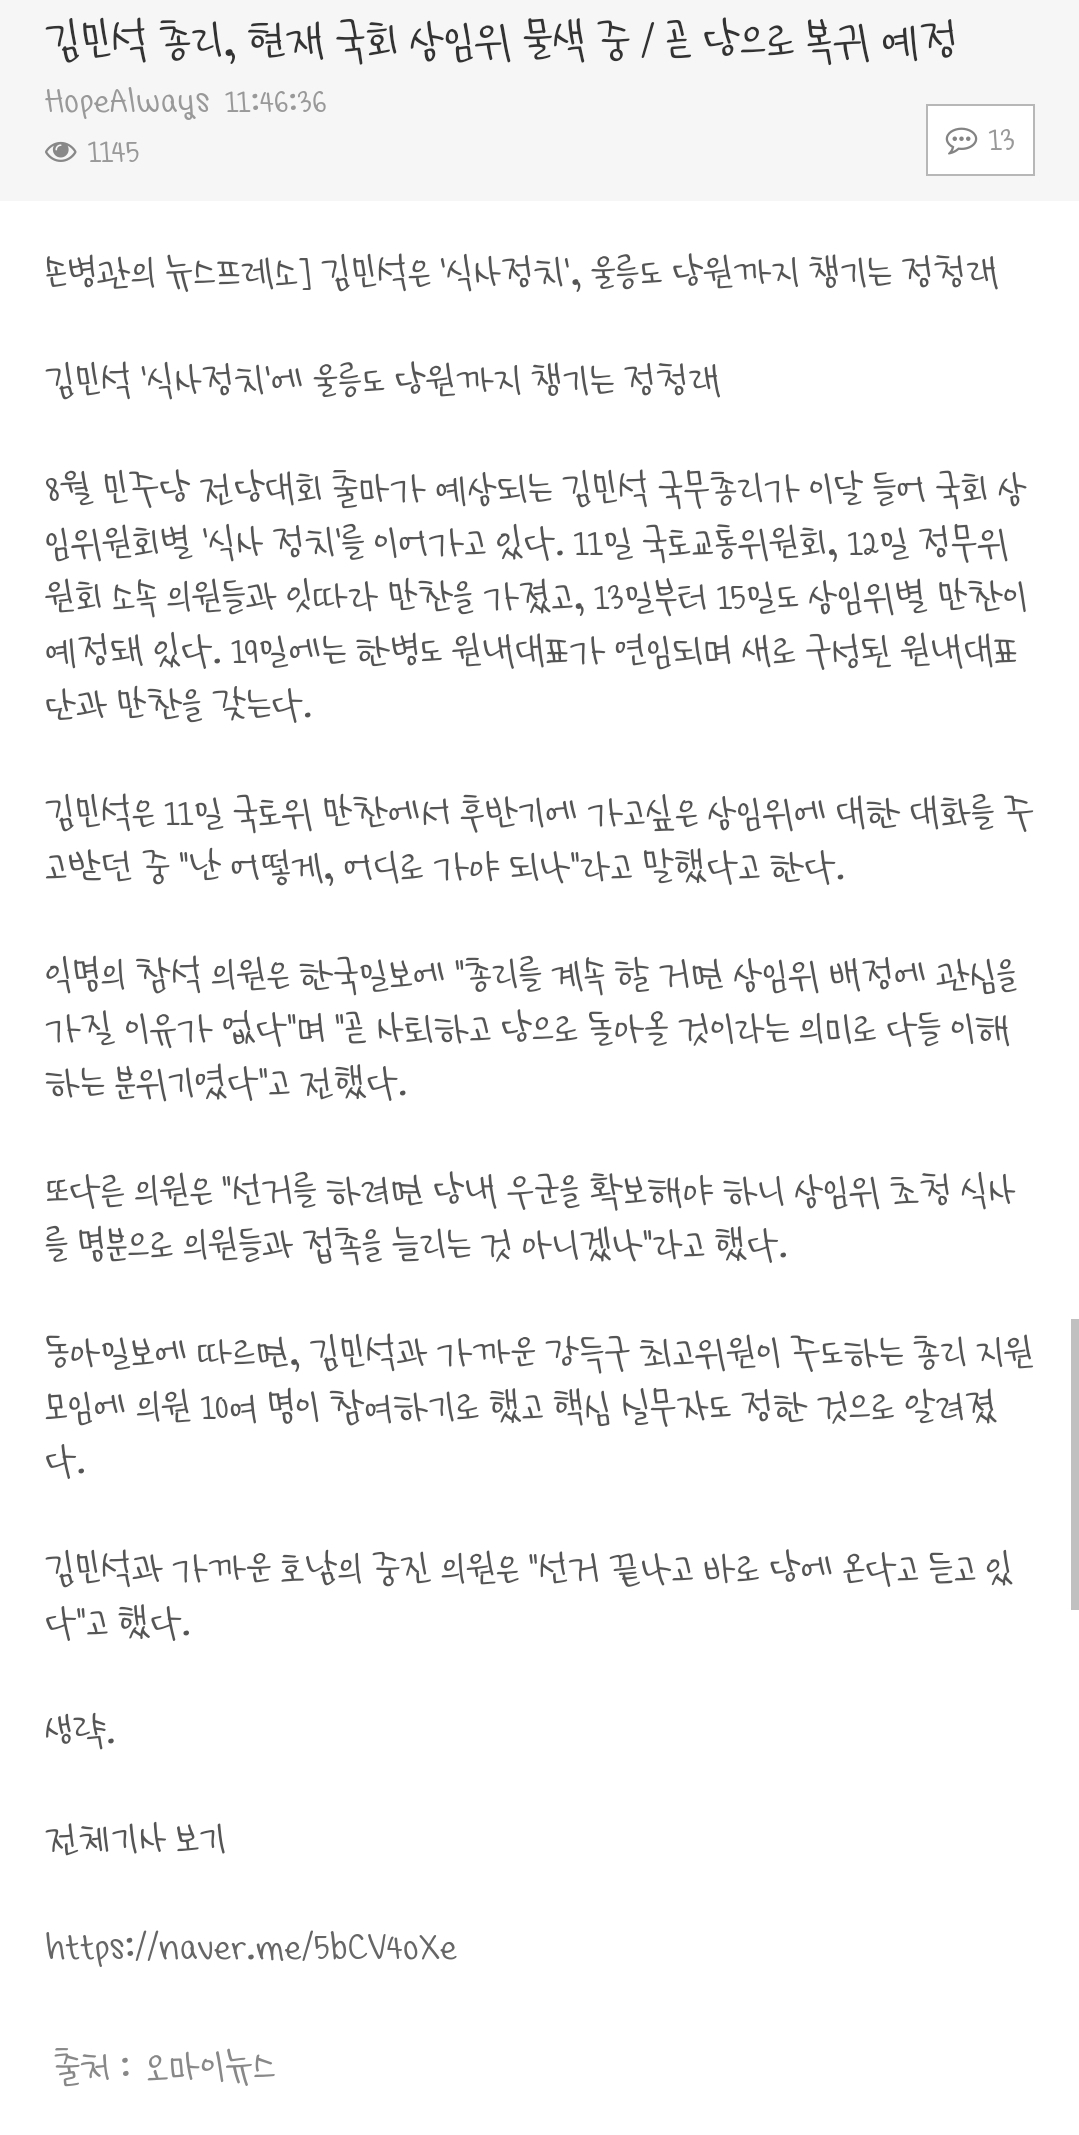 김민석 총리, 현재 국회 상임위 물색 중 / 곧 당으로 복귀 예정
HopeAlways 11:46:36
1145
13
손병관의 뉴스프레소] 김민석은 '식사정치', 울릉도 당원까지 챙기는 정청래
김민석 '식사정치'에 울릉도 당원까지 챙기는 정청래
8월 민주당 전당대회 출마가 예상되는 김민석 국무총리가 이달 들어 국회 상
임위원회별 '식사 정치'를 이어가고 있다. 11일 국토교통위원회, 12일 정무위
원회 소속 의원들과 잇따라 만찬을 가졌고, 13일부터 15일도 상임위별 만찬이
예정돼 있다. 19일에는 한병도 원내대표가 연임되며 새로 구성된 원내대표
단과 만찬을 갖는다.
김민석은 11일 국토위 만찬에서 후반기에 가고싶은 상임위에 대한 대화를 주
고받던 중 "난 어떻게, 어디로 가야 되나"라고 말했다고 한다.
익명의 참석 의원은 한국일보에 "총리를 계속 할 거면 상임위 배정에 관심을
가질 이유가 없다"며 "곧 사퇴하고 당으로 돌아올 것이라는 의미로 다들 이해
하는 분위기였다"고 전했다.
또다른 의원은 "선거를 하려면 당내 우군을 확보해야 하니 상임위 초청 식사
를 명분으로 의원들과 접촉을 늘리는 것 아니겠나"라고 했다.
동아일보에 따르면, 김민석과 가까운 강득구 최고위원이 주도하는 총리 지원
모임에 의원 10여 명이 참여하기로 했고 핵심 실무자도 정한 것으로 알려졌
다.
김민석과 가까운 호남의 중진 의원은 "선거 끝나고 바로 당에 온다고 듣고 있
다"고 했다.
생략.
전체기사 보기
https://naver.me/5bCV4oXe
출처 : 오마이뉴스